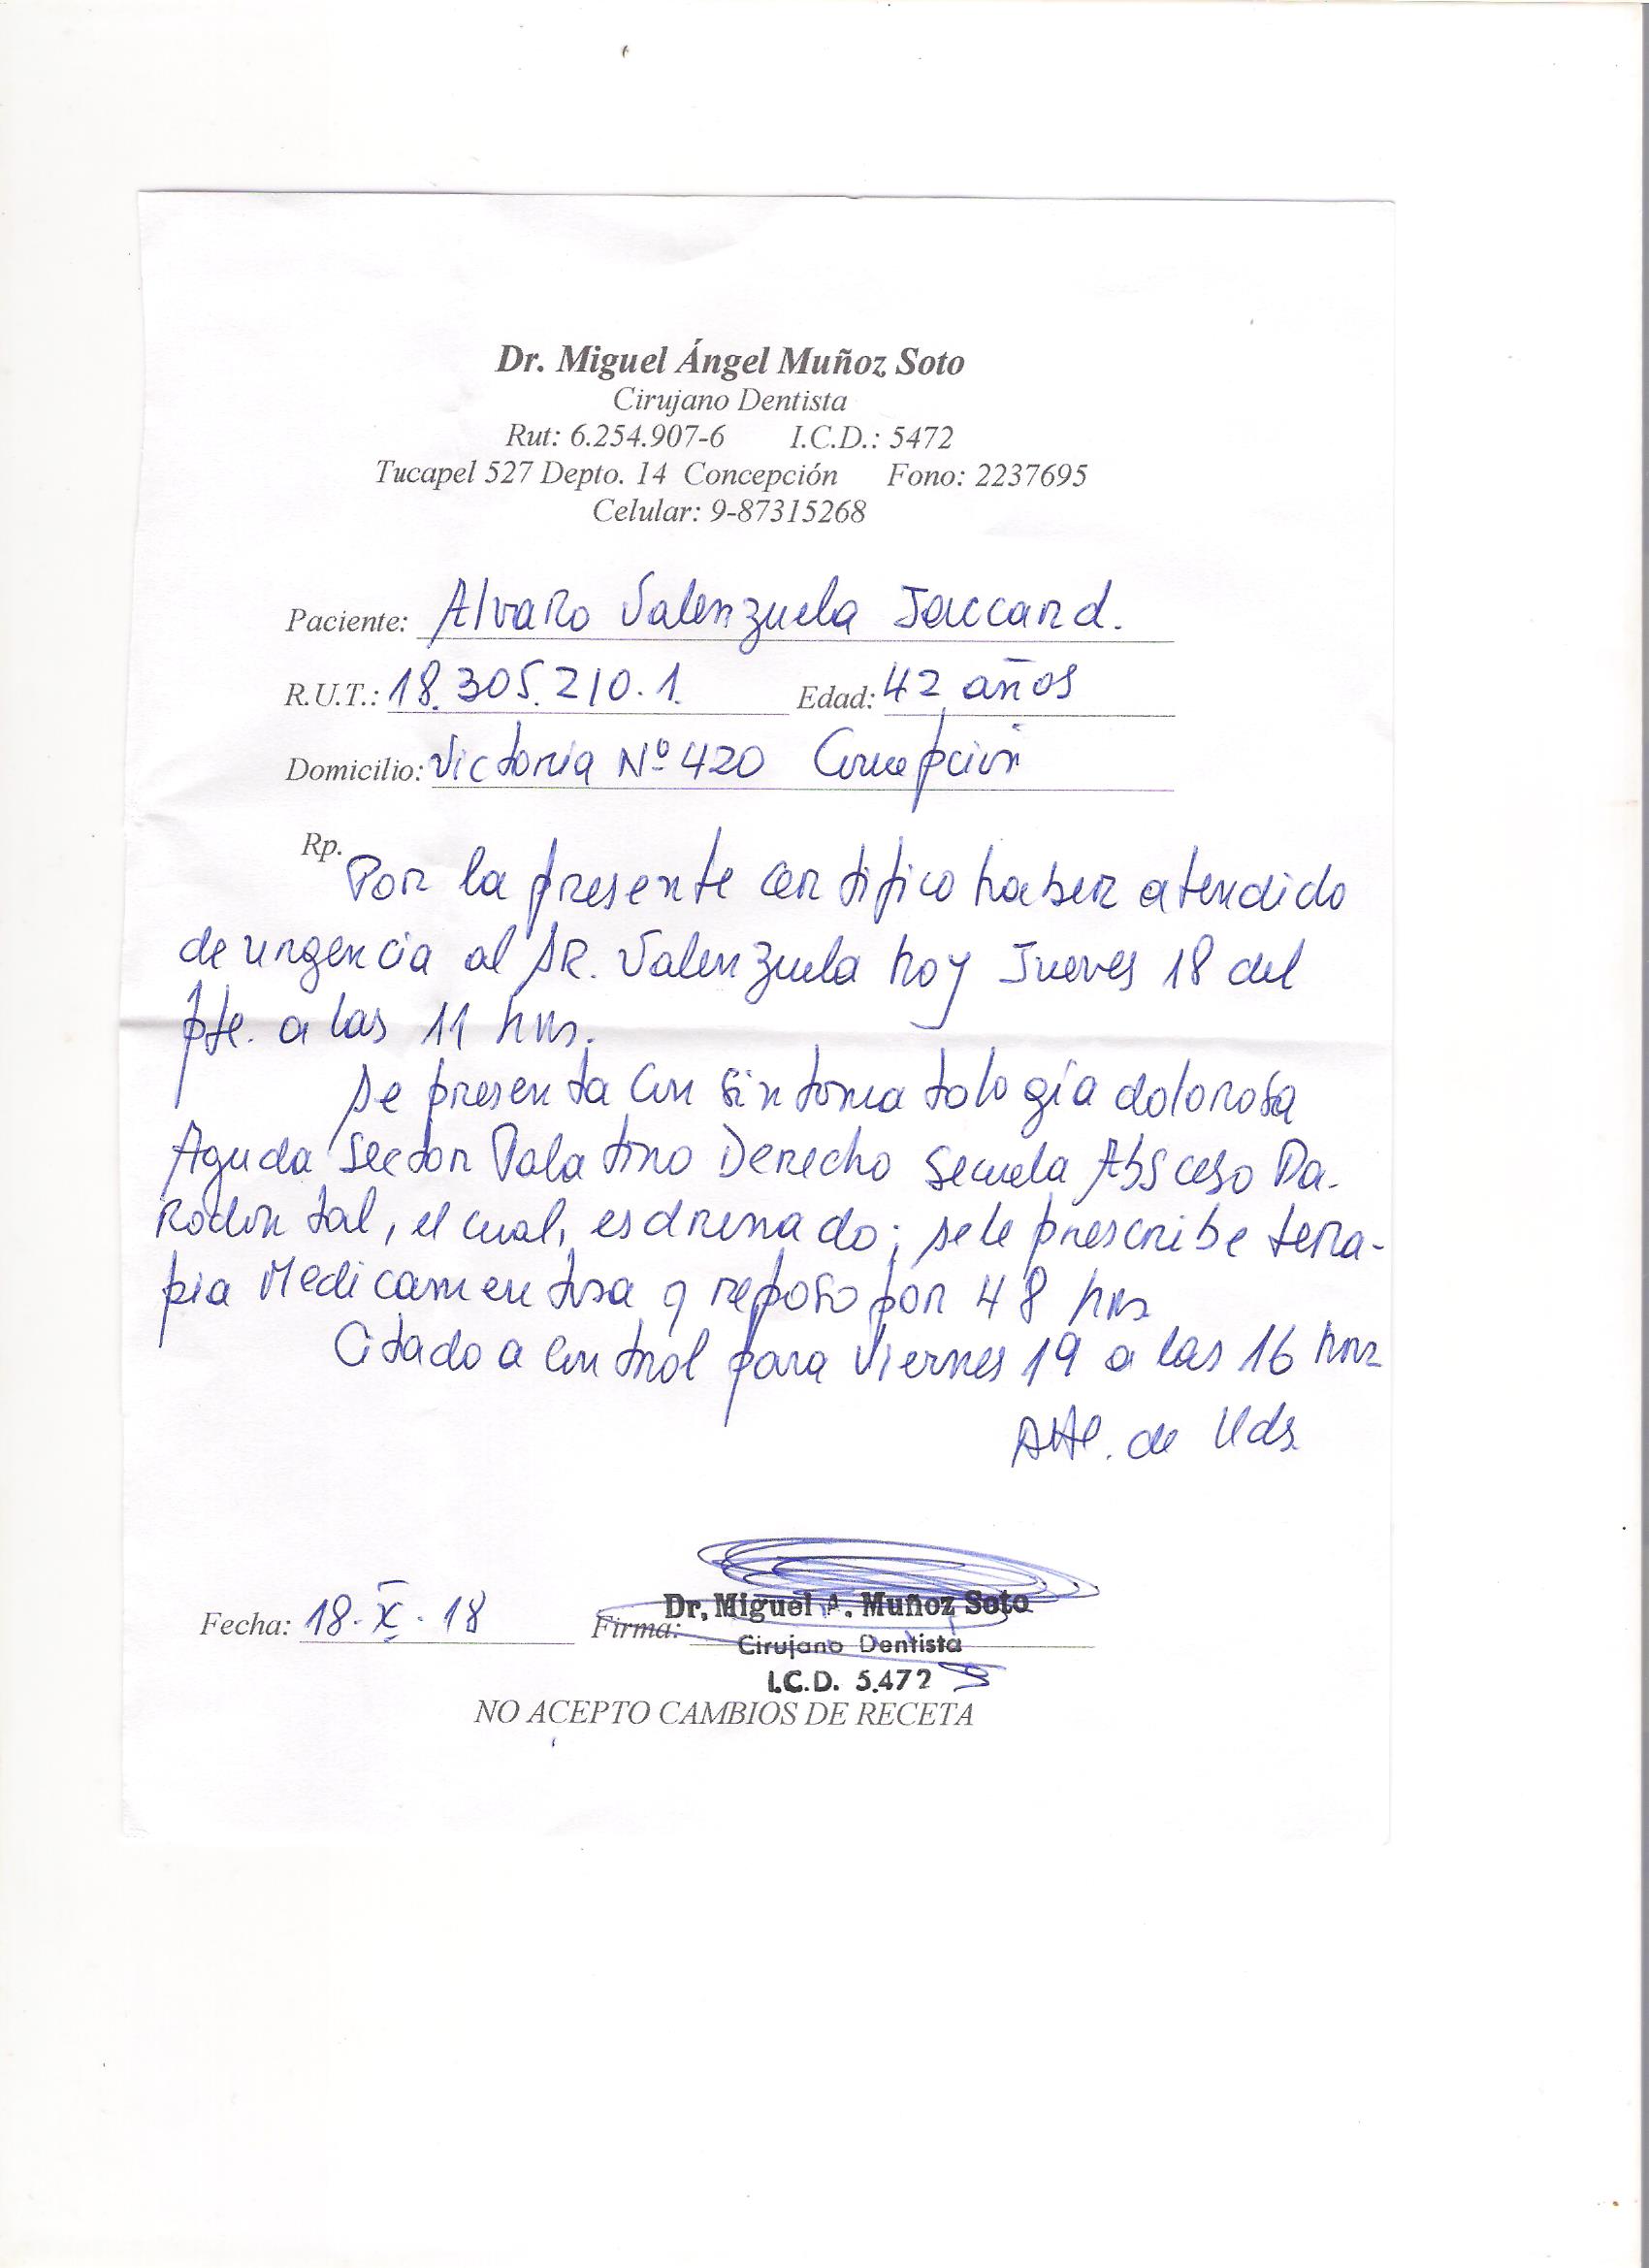 Dr. Miguel Ángel Muñoz Soto
Cirujano Dentista
Rut: 6.254.907-6 I.C.D.: 5472
Tucapel 527 Depto. 14 Concepción Fono: 2237695
Celular: 9-87315268
Paciente: Alvaro Valenzuela Jaccard.
R.U.T.: 18.305.210.1. Edad: 42 años
Domicilio: Victoria Nº 420 Concepción
Rp.
Por la presente certifico haber atendido
de urgencia al SR. Valenzuela hoy Jueves 18 del
pte. a las 11 hrs.
Se presenta con sintomatología dolorosa
Aguda Sector Palatino Derecho Secuela Absceso Pa-
rodontal, el cual, es drenado; se le prescribe tera-
pia Medicamentosa y reposo por 48 hrs
Citado a control para Viernes 19 a las 16 hrs
Atte. de Uds.
Fecha: 18-X-18 Firma:
Dr. Miguel A. Muñoz Soto
Cirujano Dentista
I.C.D. 5.472
NO ACEPTO CAMBIOS DE RECETA